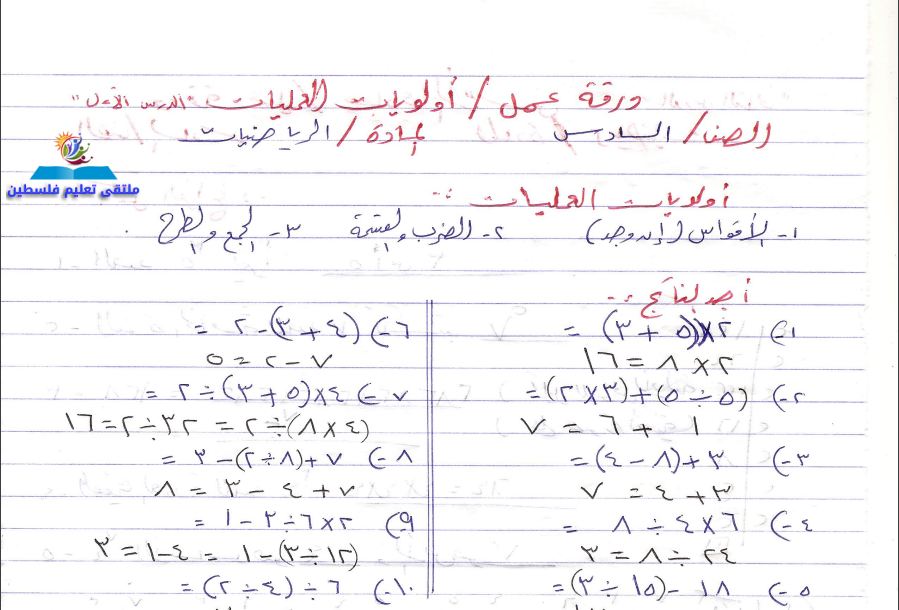 ورقة عمل / أولويات العمليات "الدرس الأول"
الصف / السادس المادة / الرياضيات
ملتقى تعليم فلسطين
أولويات العمليات :-
١- الأقواس (إن وجد) ٢- الضرب والقسمة ٣- الجمع والطرح .
أجد الناتج :-
١-) ٢×(٥ + ٣) =
٢ × ٨ = ١٦
٢-) (٥ ÷ ٥)+(٣×٢)=
١ + ٦ = ٧
٣-) ٣+(٨ - ٤)=
٣+٤ = ٧
٤-) ٦×٤÷ ٨ =
٢٤ ÷ ٨ = ٣
٥-) ١٨ - (١٥ ÷ ٣)=
٦-) (٤ + ٣)-٢ =
٧ - ٢ = ٥
٧-) ٤×(٥ + ٣)÷٢ =
(٤×٨)÷٢ = ٣٢÷٢=١٦
٨-) ٧+(٨÷٢)-٣ =
٧+٤ - ٣ = ٨
٩-) ٢×٦÷٣-١ =
(١٢÷٣)-١ = ٤-١ = ٣
١٠-) ٦ ÷ (٤÷٢) =